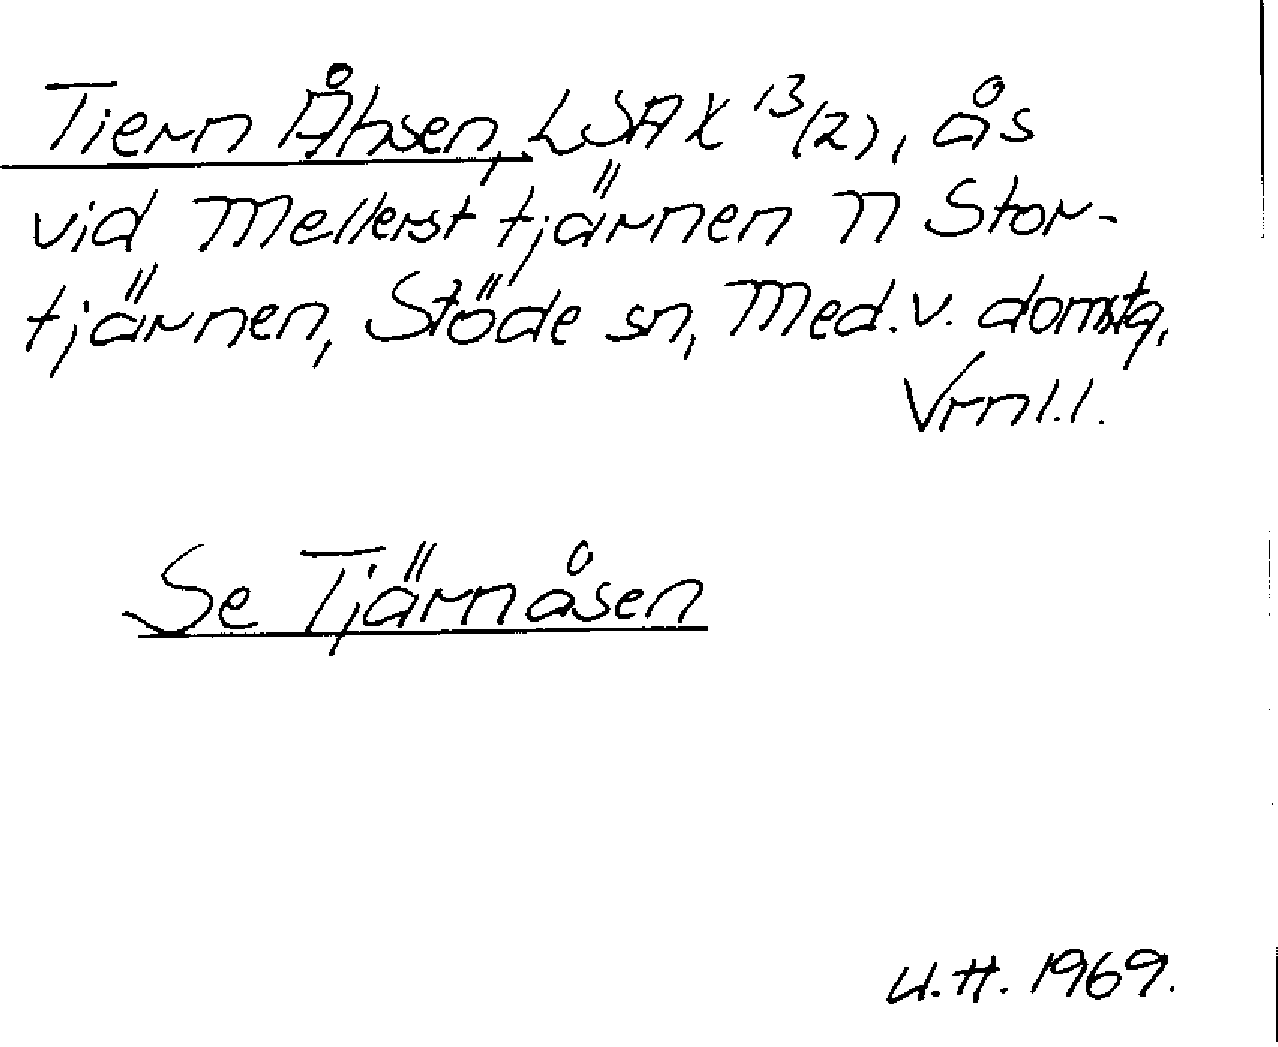 Tiern Åhsen, LSA X 13/(2), ås
vid Mellerst tjärnen n Stor-
tjärnen, Stöde sn, Med. v. domstg,
Vrnl.l.
Se Tjärnåsen
U.H. 1969.